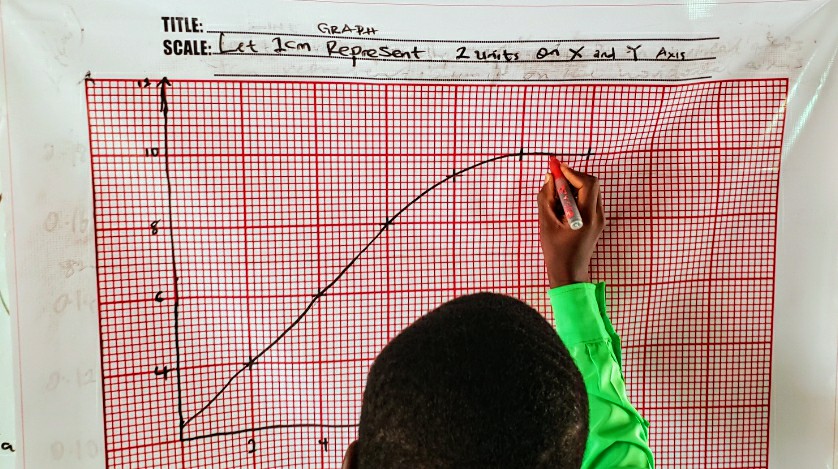 TITLE: GRAPH
SCALE: Let 1cm Represent 2 units on X and Y Axis
12
10
8
6
4
2 4
a